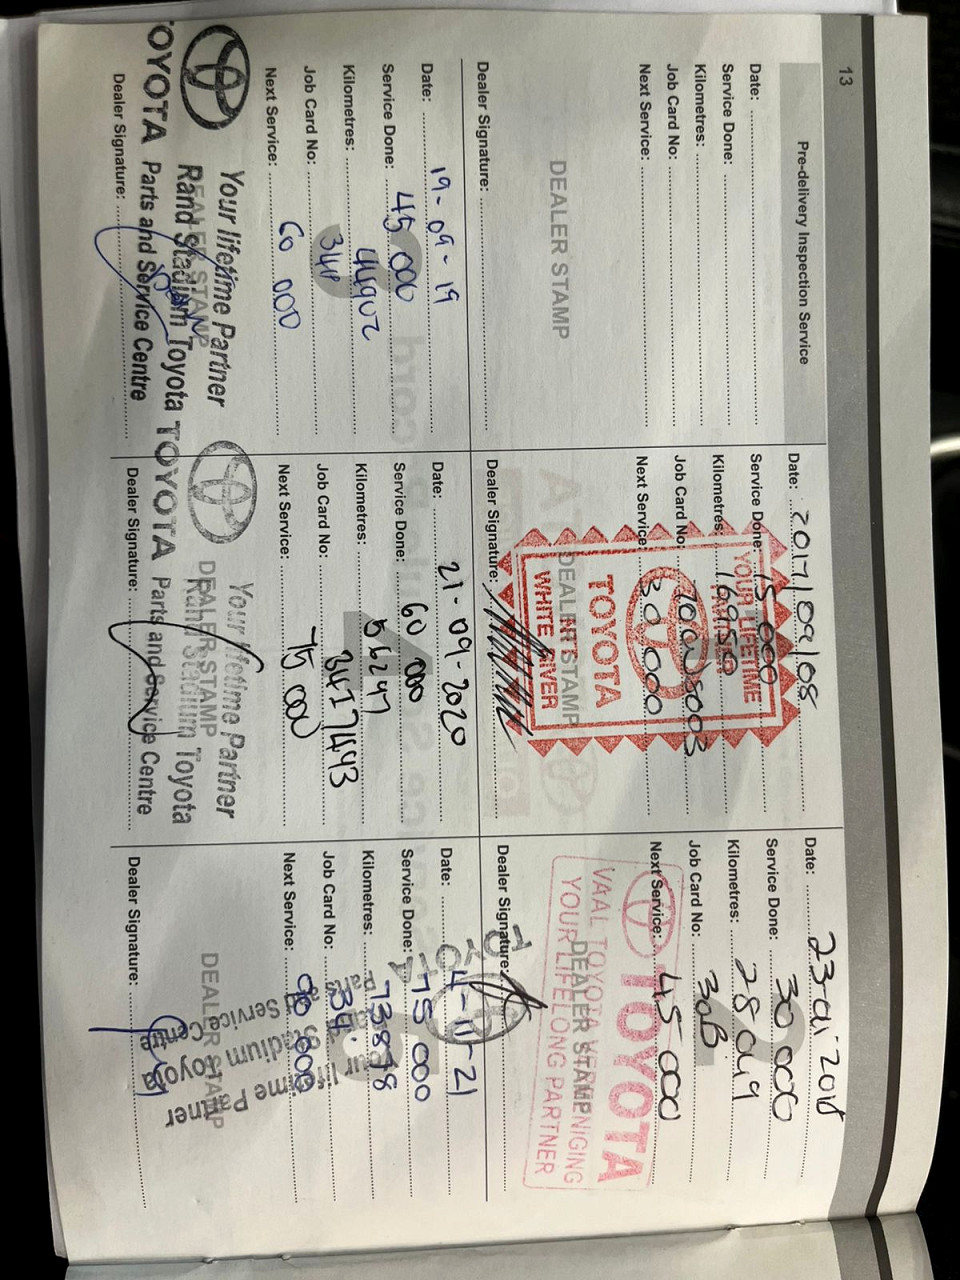 13
Pre-delivery Inspection Service
Date:
Service Done:
Kilometres:
Job Card No:
Next Service:
DEALER STAMP
Dealer Signature:
Date: 2017/09/08
Service Done: 15 000
Kilometres: 16950
Job Card No:
Next Service: 30 000
YOUR LIFETIME
TOYOTA
WHITE RIVER
DEALER STAMP
Dealer Signature:
Date:
Service Done: 30 000
Kilometres: 28 049
Job Card No: 30B
Next Service: 45 000
TOYOTA
VAAL TOYOTA VEREENIGING
YOUR LIFELONG PARTNER
DEALER STAMP
Dealer Signature:
Date: 19-09-19
Service Done: 45 000
Kilometres: 44902
Job Card No: 34P
Next Service: 60 000
Your lifetime Partner
DEALER STAMP
Rand Stadium Toyota
TOYOTA Parts and Service Centre
Dealer Signature:
Date: 21-09-2020
Service Done: 60 000
Kilometres: 56247
Job Card No: 34I7493
Next Service: 75 000
Your lifetime Partner
DEALER STAMP
Rand Stadium Toyota
TOYOTA Parts and Service Centre
Dealer Signature:
Date: 4-11-21
Service Done: 75 000
Kilometres: 73878
Job Card No: 34
Next Service: 90 000
DEALER STAMP
Dealer Signature: